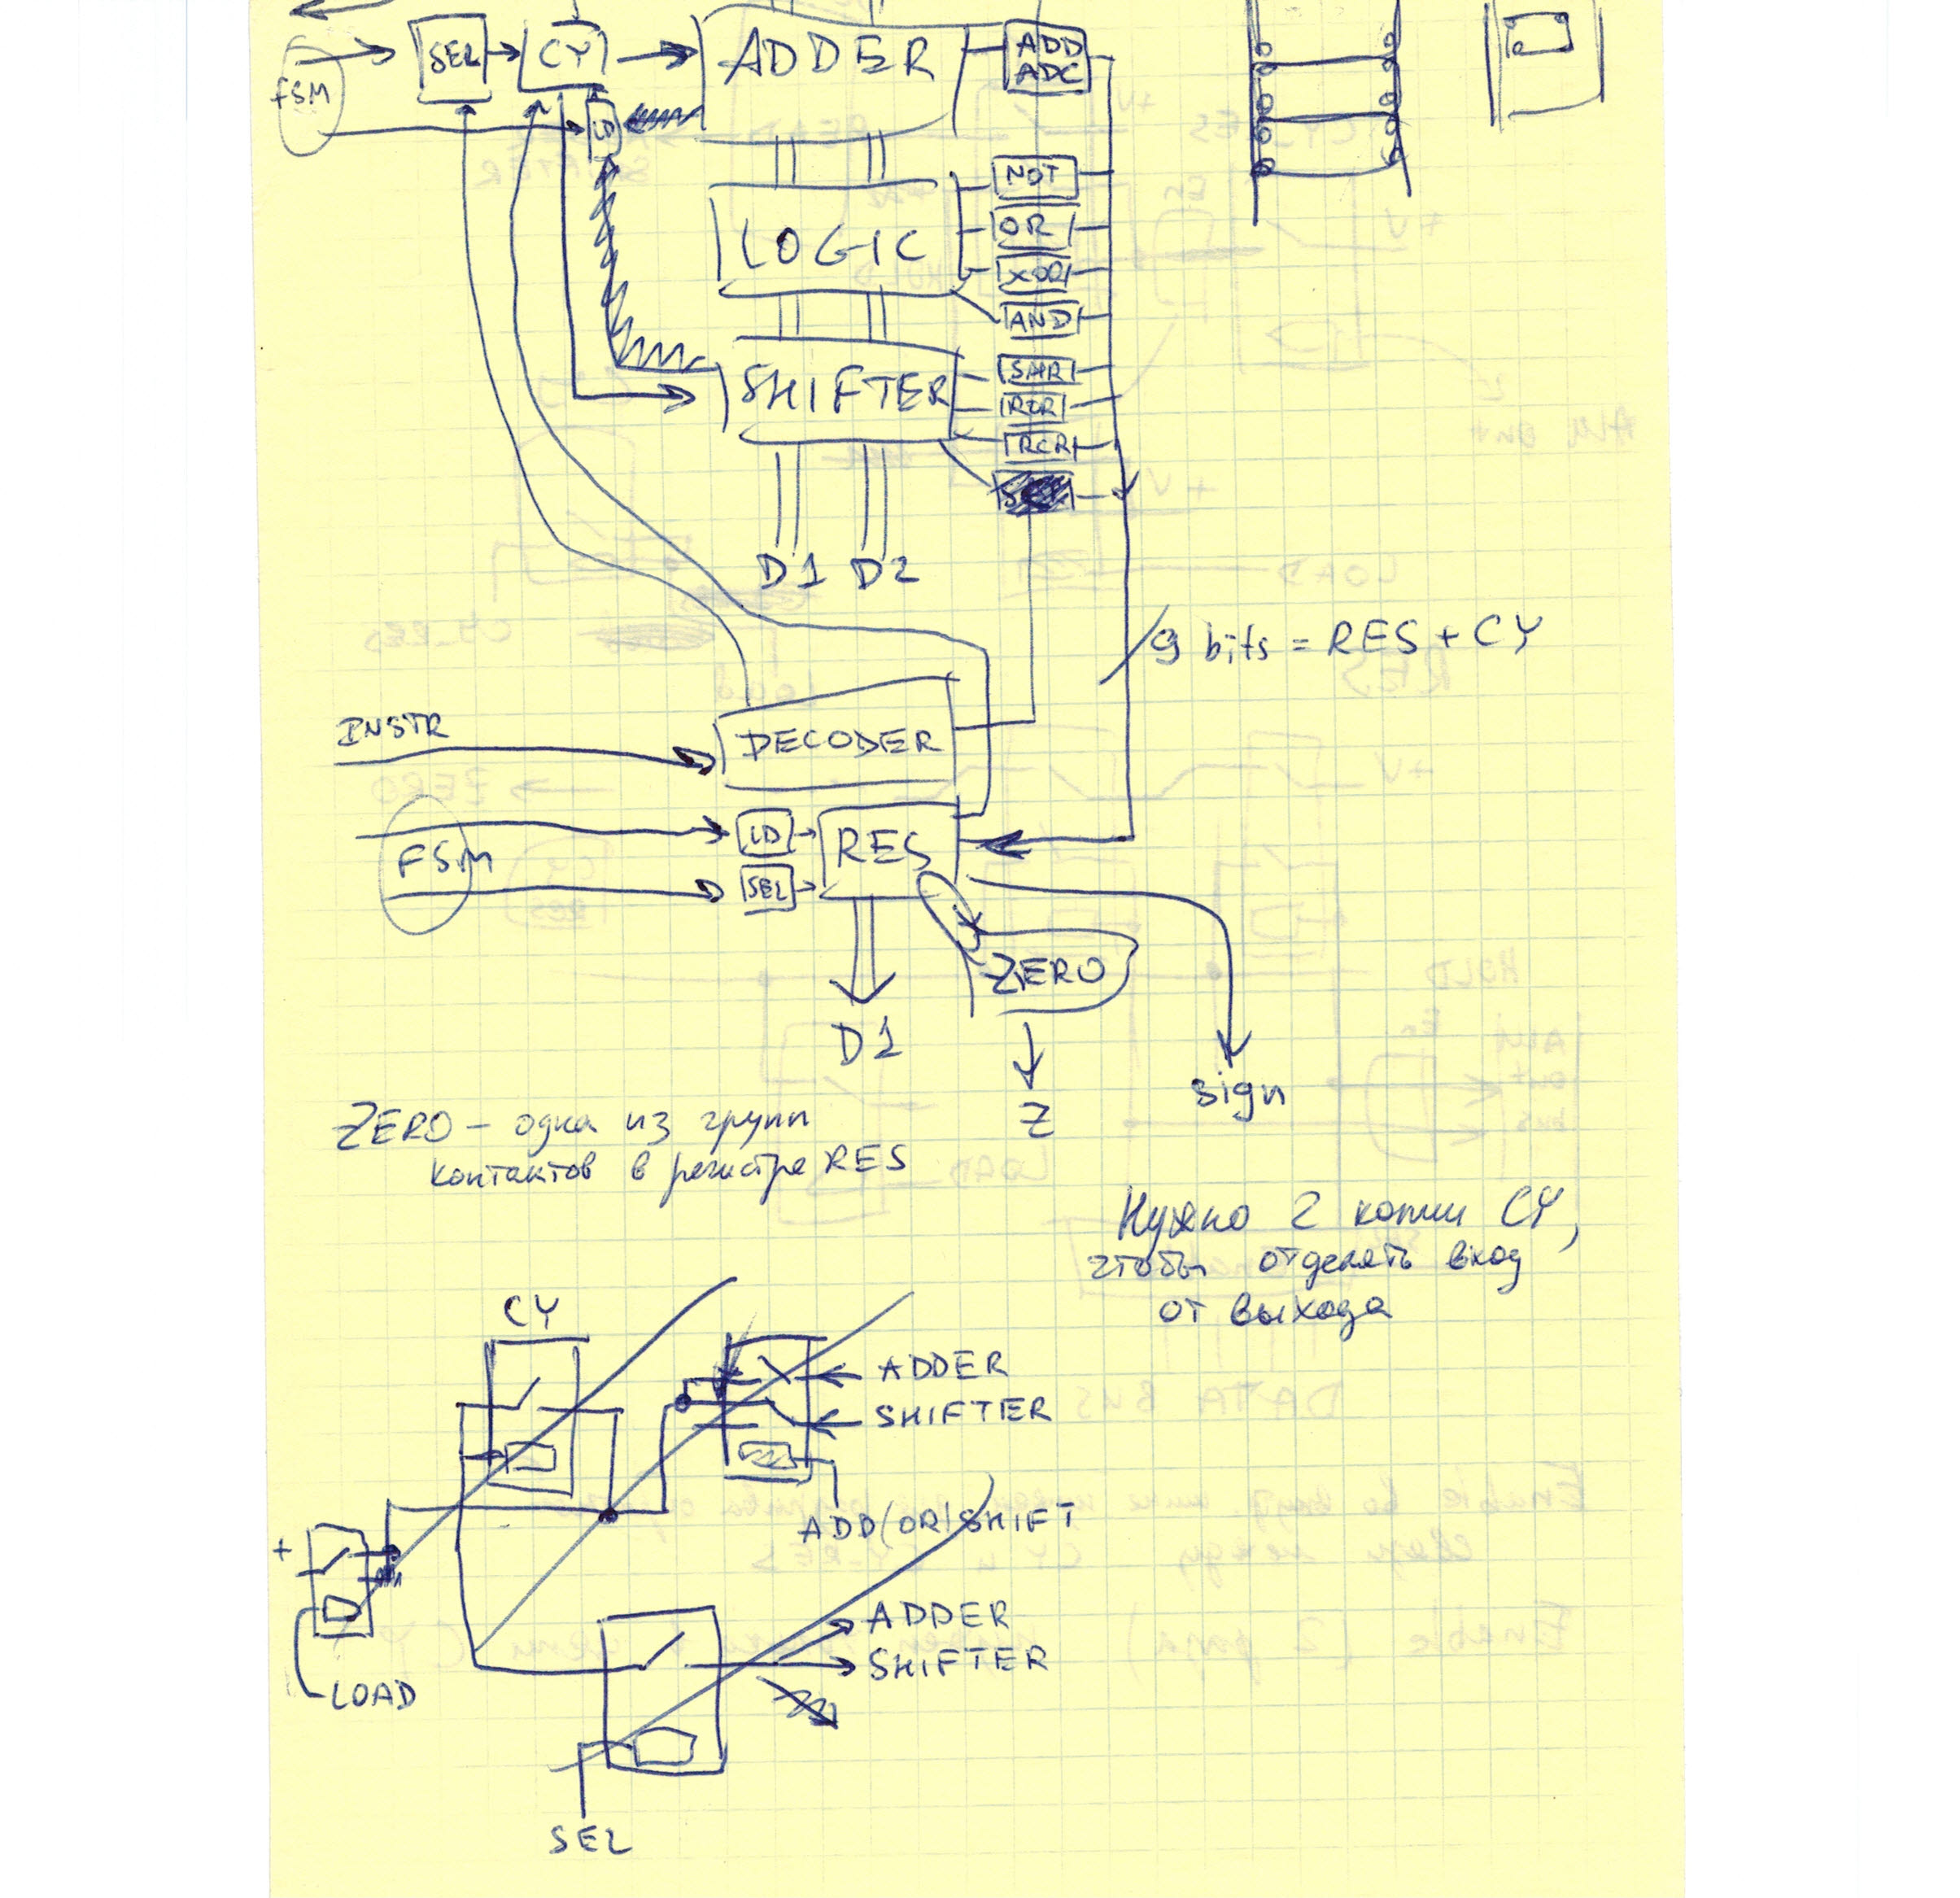 SEL
CY
ADDER
ADD
ADC
FSM
LD
NOT
LOGIC
OR
XOR
AND
SHIFTER
SHR
ROR
RCR
D1 D2
9 bits = RES + CY
INSTR
DECODER
LD
RES
FSM
SEL
ZERO
D1
Z
sign
ZERO – одна из групп
контактов в регистре RES
Нужно 2 копии CY,
чтобы отделять вход
от выхода
CY
ADDER
SHIFTER
ADD(OR)SHIFT
+
LOAD
ADDER
SHIFTER
SEL